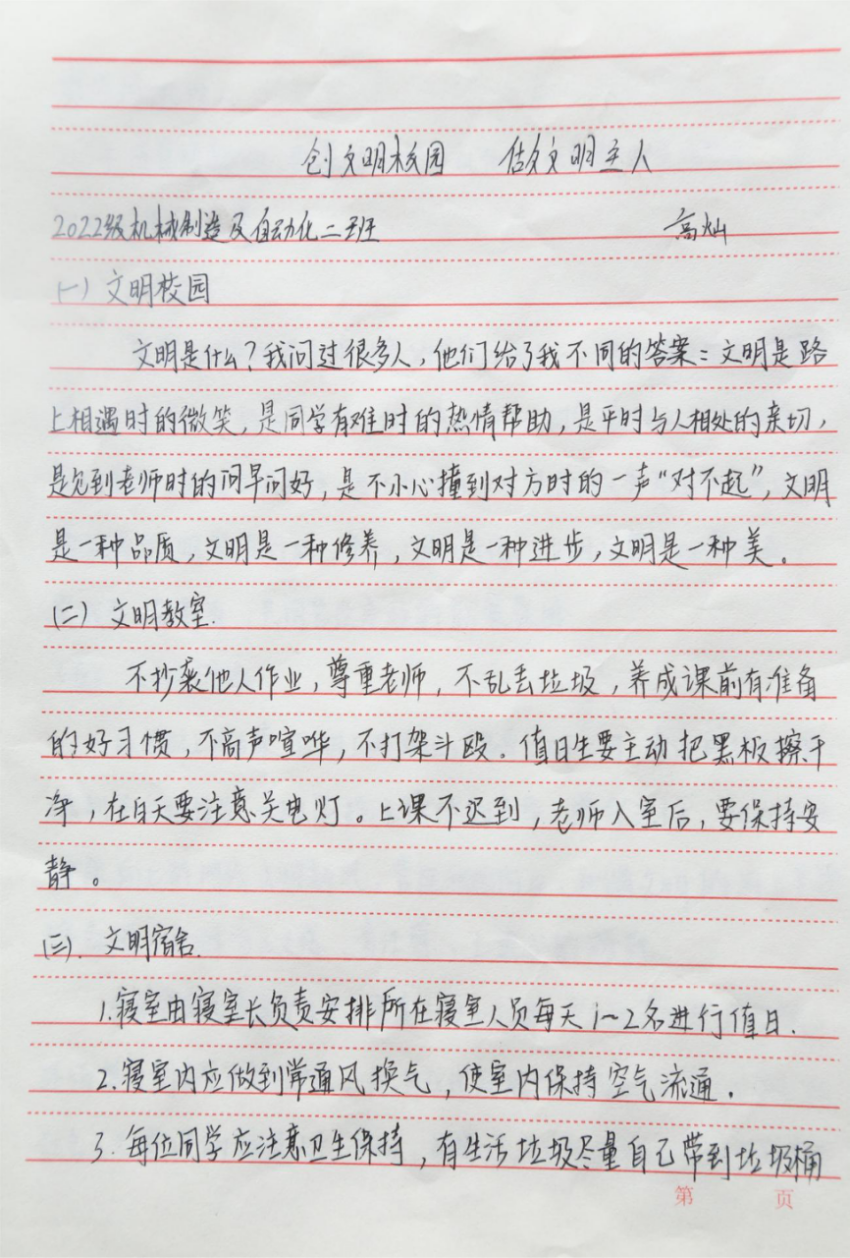 创文明校园 做文明主人
2022级机械制造及自动化二班 高灿
(一) 文明校园
文明是什么?我问过很多人,他们给了我不同的答案:文明是路
上相遇时的微笑,是同学有难时的热情帮助,是平时与人相处的亲切,
是见到老师时的问早问好,是不小心撞到对方时的一声“对不起”,文明
是一种品质,文明是一种修养,文明是一种进步,文明是一种美。
(二) 文明教室.
不抄袭他人作业,尊重老师,不乱丢垃圾,养成课前有准备
的好习惯,不高声喧哗,不打架斗殴.值日生要主动把黑板擦干
净,在白天要注意关电灯。上课不迟到,老师入室后,要保持安
静。
(三). 文明宿舍.
1.寝室由寝室长负责安排所在寝室人员每天1~2名进行值日.
2.寝室内应做到常通风换气,使室内保持空气流通.
3.每位同学应注意卫生保持,有生活垃圾尽量自己带到垃圾桶
第 页